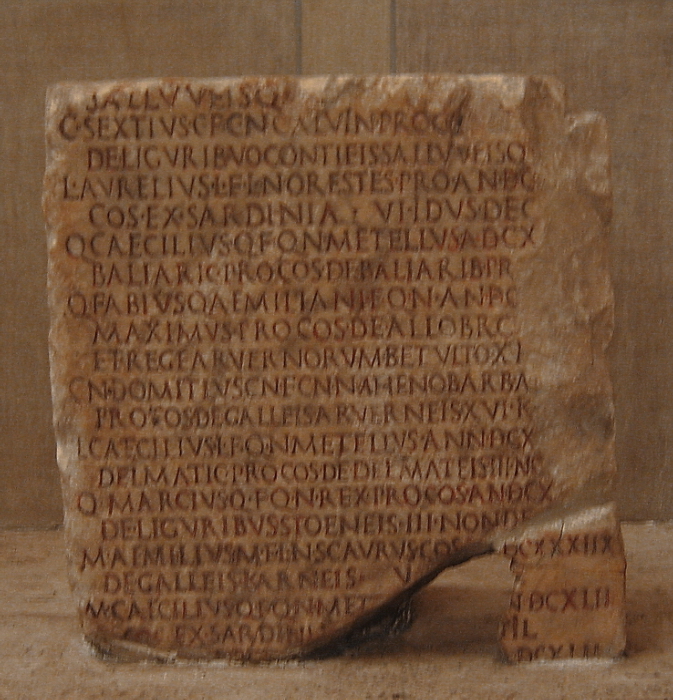 SALLVVEISQ
C·SEXTIVS·C·F·C·N·CALVIN·PROCO
DE·LIGVRIB·VOCONTIEIS·SALLVVEISQ
L·AVRELIVS·L·F·L·N·ORESTES·PRO·AN·DC
COS·EX·SARDINIA·VI·IDVS·DEC
Q·CAECILIVS·Q·F·Q·N·METELLVS·A·DCX
BALIARIC·PROCOS·DE·BALIARIB·PR
Q·FABIVS·Q·AEMILIANI·F·Q·N·AN·DC
MAXIMVS·PROCOS·DE·ALLOBRO
ET·REGE·ARVERNORVM·BETVLTO·X·I
CN·DOMITIVS·CN·F·CN·N·AHENOBARBA
PROCOS·DE·GALLEIS·ARVERNEIS·XVI·K
L·CAECILIVS·L·F·Q·N·METELLVS·ANN·DCX
DELMATIC·PROCOS·DE·DELMATEIS·III·NO
Q·MARCIVS·Q·F·Q·N·REX·PROCOS·AN·DCX
DE·LIGVRIBVS·STOENEIS·III·NON·DE
M·AEMILIVS·M·F·L·N·SCAVRVS·COS DCXXXIIX
DE·GALLEIS·KARNEIS· V
M·CAECILIVS·Q·F·Q·N·MET N·DCXLII
COS·EX·SARDINI TIL
N·DCXLII